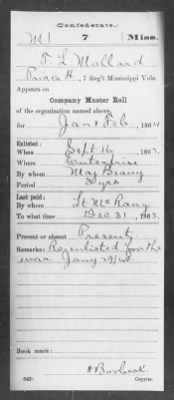 (Confederate.)
M | 7 | Miss.
T. L. Mallard
Pri, Co. H, 7 Reg't Mississippi Vols.
Appears on
Company Muster Roll
of the organization named above,
for Jan & Feb, 1864
Enlisted:
When Sept 16, 186
Where Enterprise
By whom Maj
Period 3 yrs
Last paid:
By whom Lt McRany
To what time Dec 31, 1863.
Present or absent Present
Remarks: Reenlisted for the
war Jany 29/64
Book mark:
(642)
Copyist.